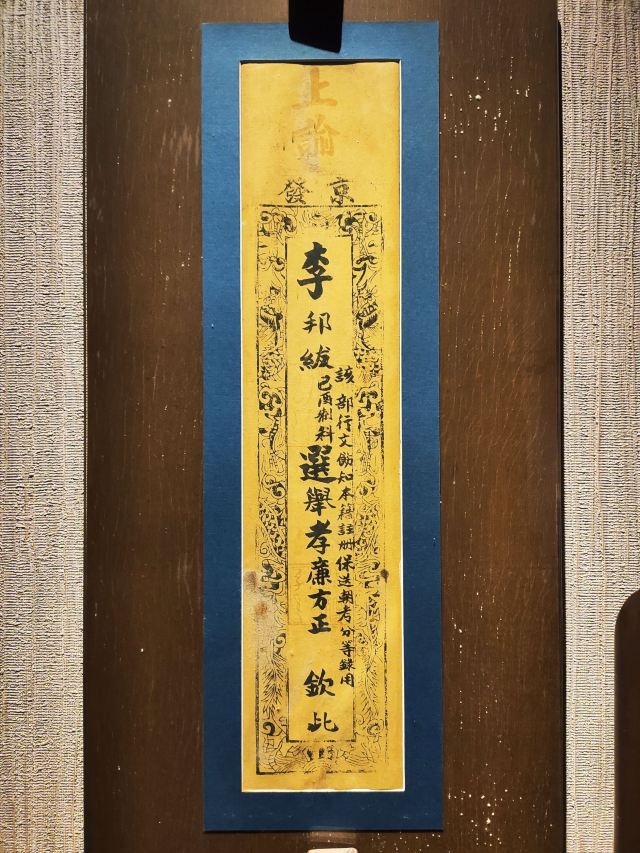 上諭
京發
李邦紱己酉制科選舉孝廉方正
該部行文飭知本籍註冊保送朝考分等錄用
欽此